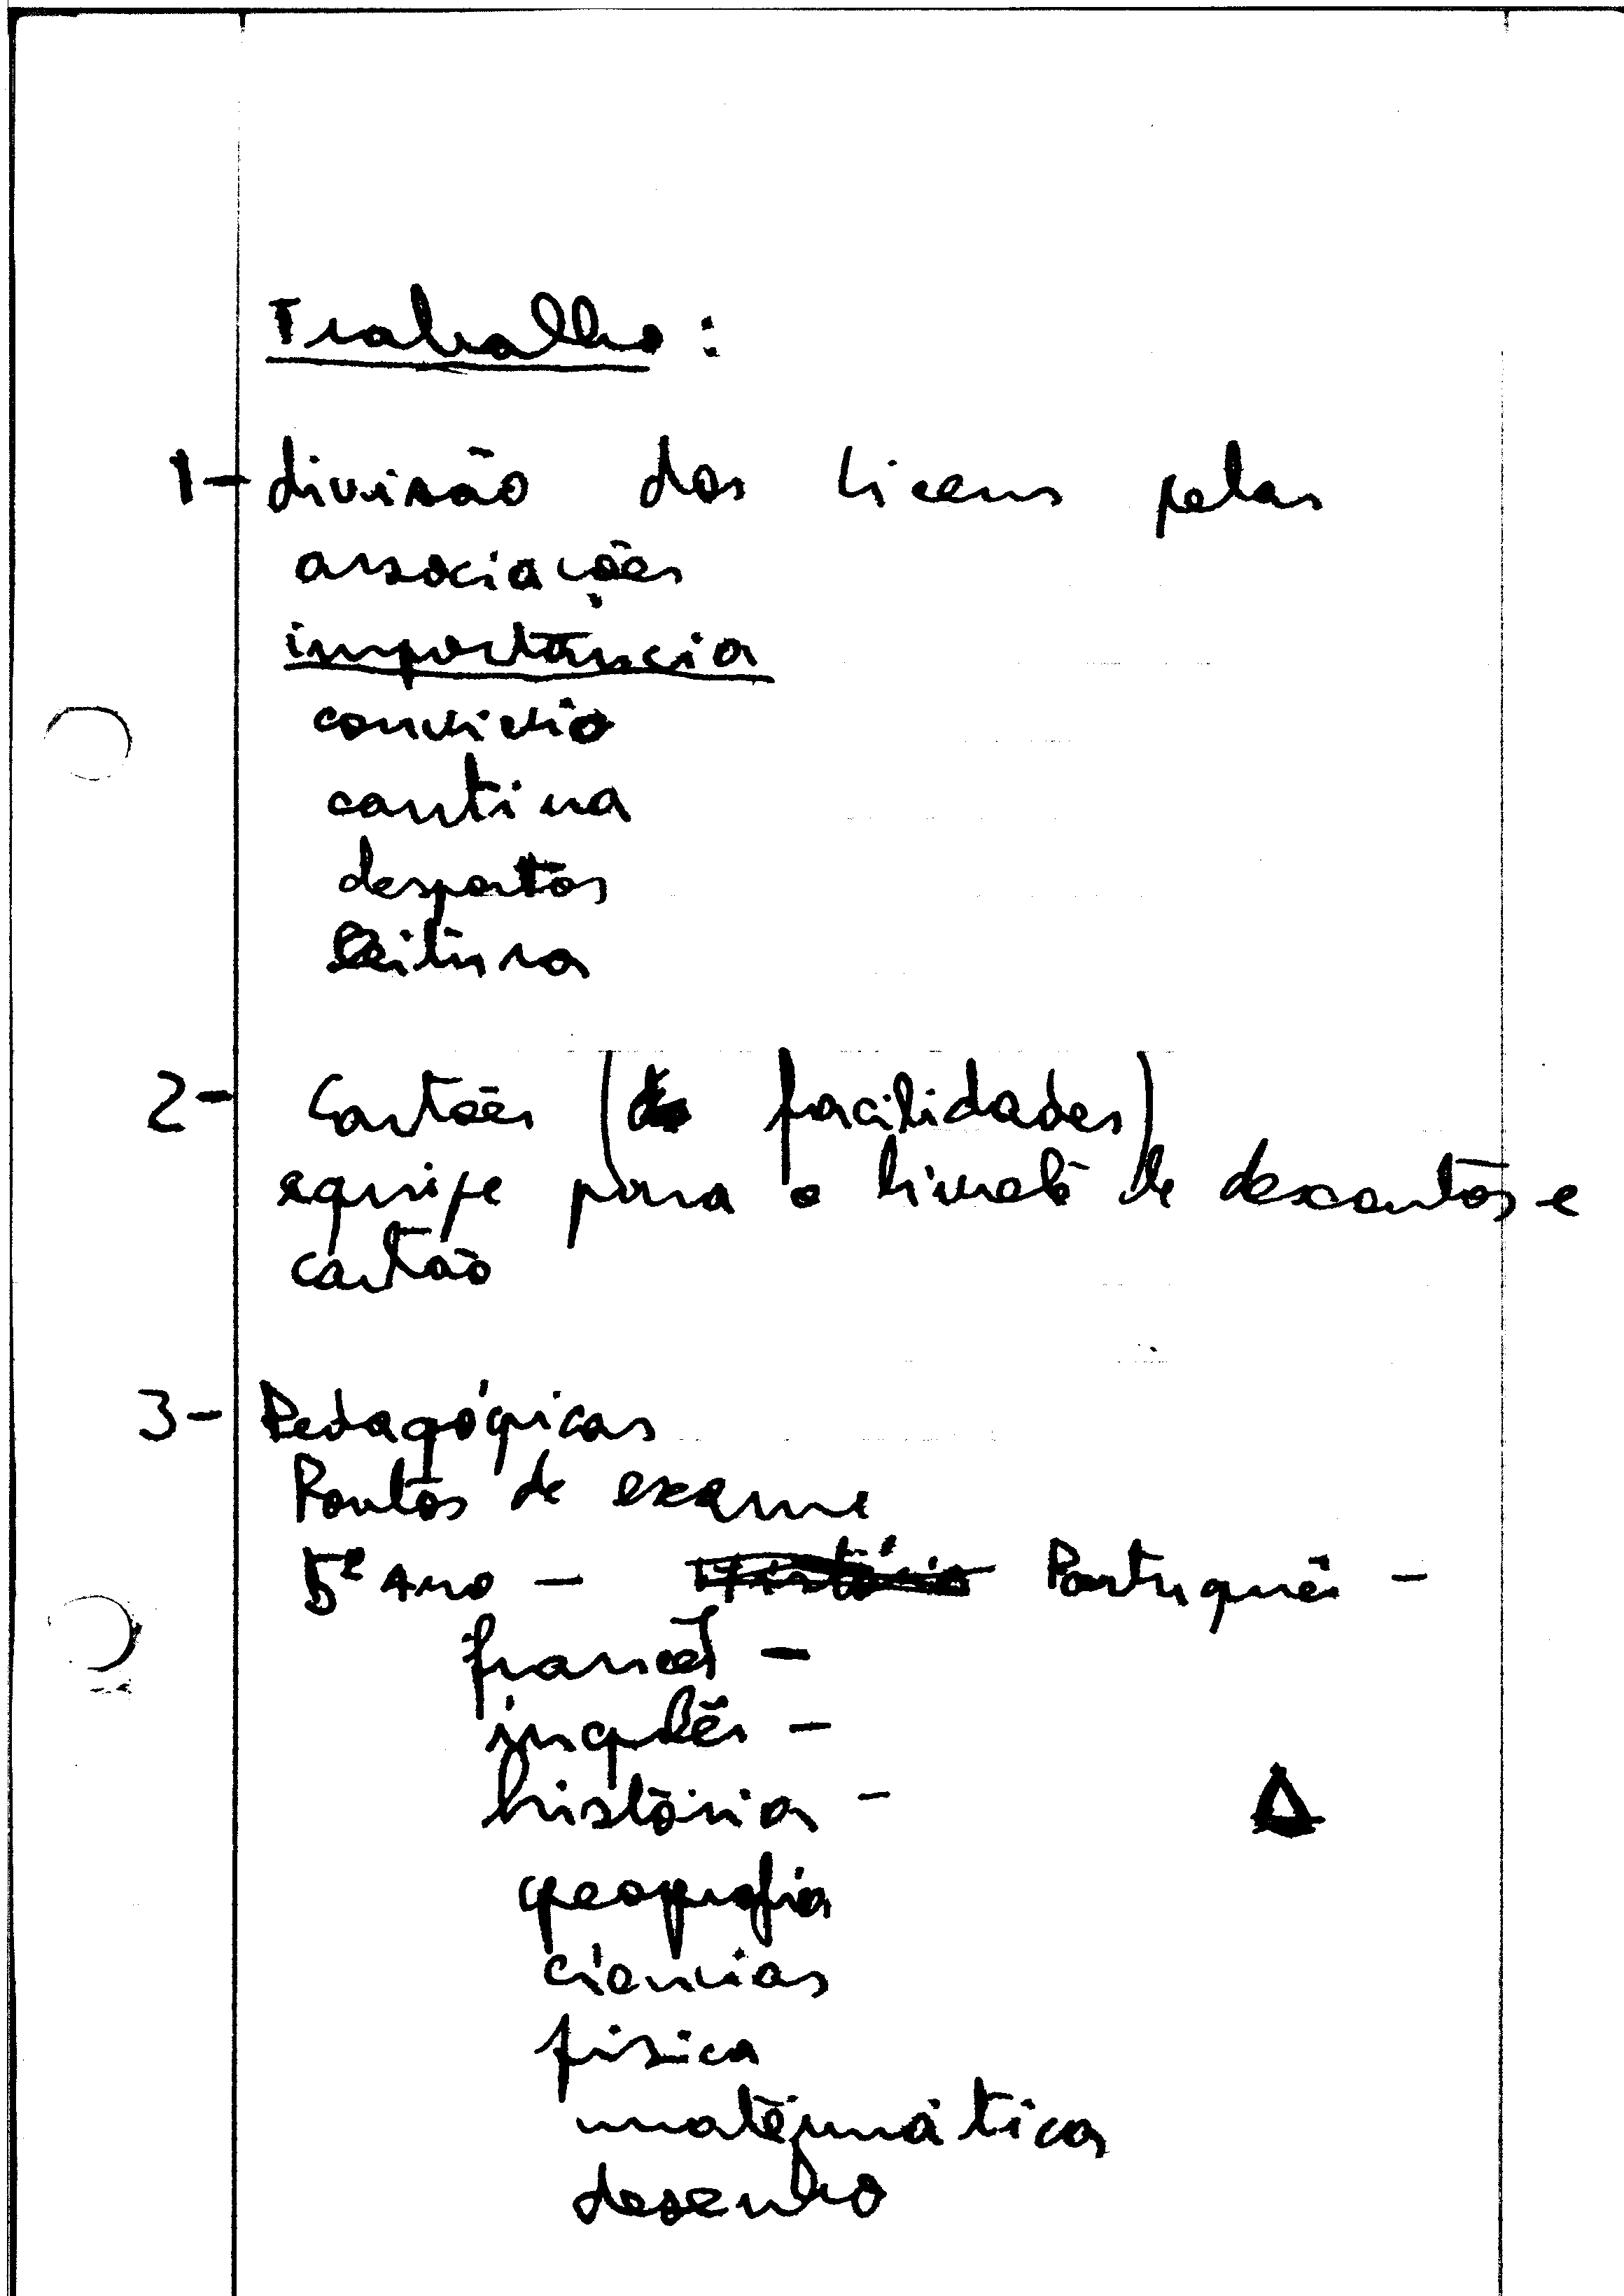 Trabalho :
1- divisão dos liceus pelas
associações
importância
convívio
cantina
desportos
leitura
2- Cartões (de facilidades)
equipe para o livrete de descontos e
cartão
3- Pedagógicas
Pontos de exame
5º Ano - História Português -
francês -
inglês -
história -
geografia
ciências
física
matemática
desenho